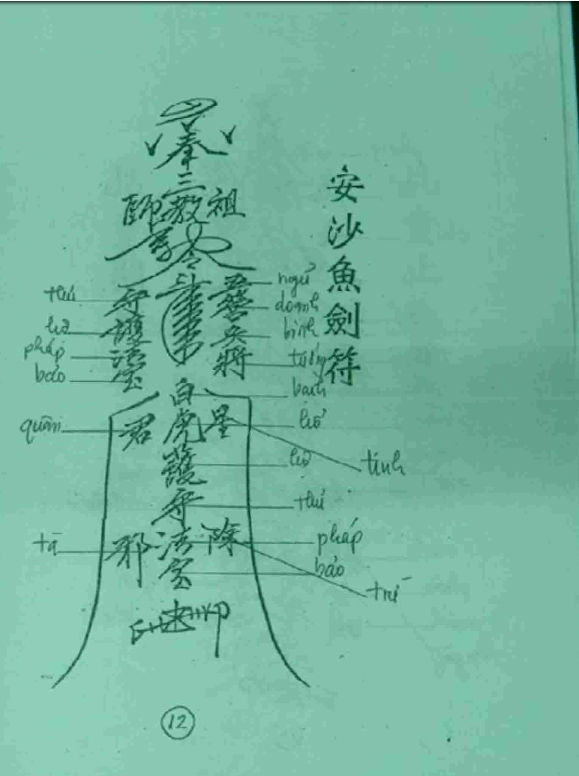 安沙魚劍符
奉
三教
師 祖
令
五營兵將
守護法宝
ngũ
doanh
binh
tướng
thủ
hộ
pháp
bảo
白虎
君 星
護
守
法宝
邪 除
bạch
hổ
quân
tinh
hộ
thủ
pháp
bảo
tà
trừ
12